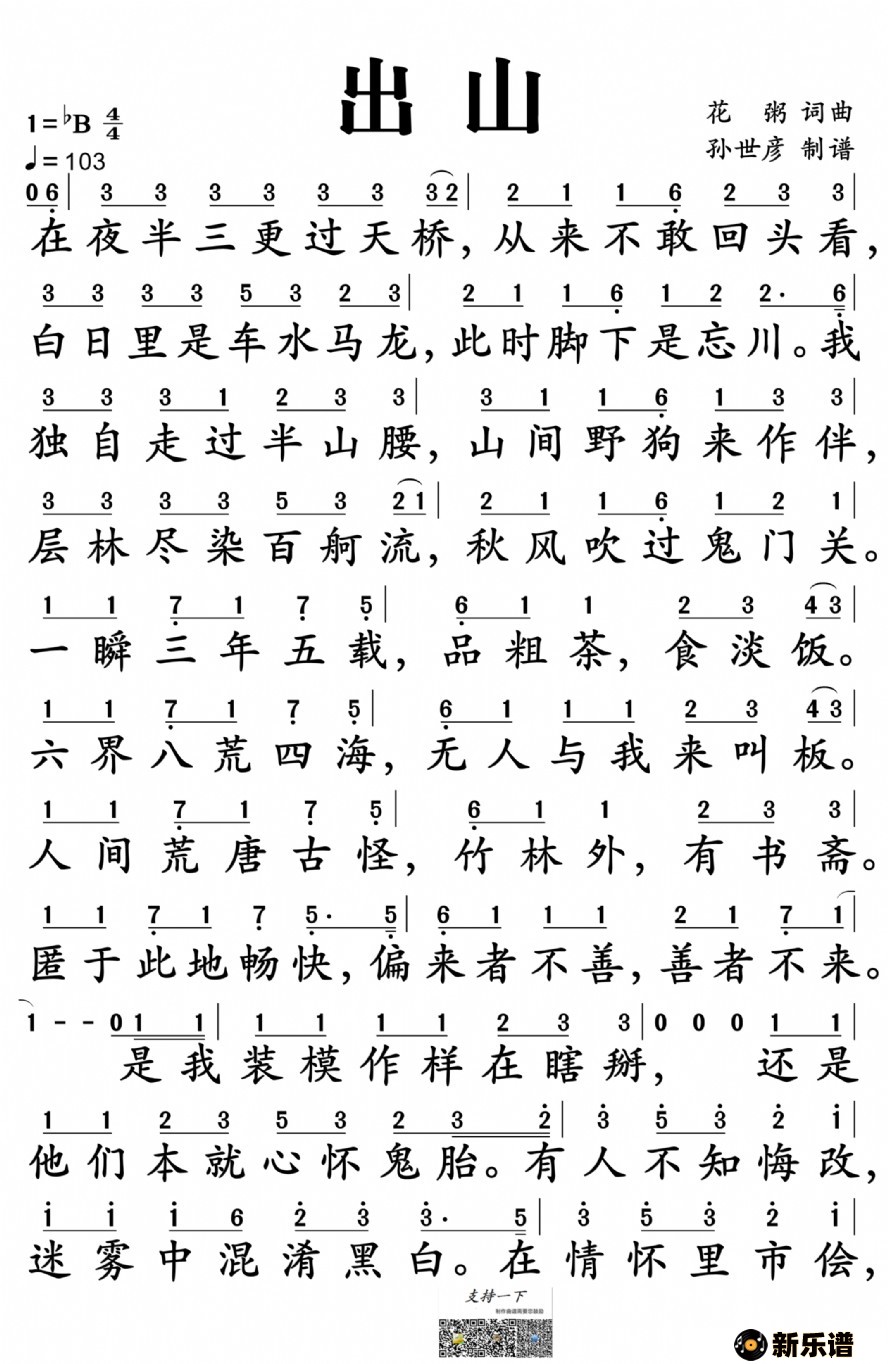 出山
1=♭B 4/4
♩=103
花 粥 词曲
孙世彦 制谱
0 6 | 3 3 3 3 3 3 3 2 | 2 1 1 6 2 3 3 |
在夜半三更过天桥,从来不敢回头看,
3 3 3 3 5 3 2 3 | 2 1 1 6 1 2 2· 6 |
白日里是车水马龙,此时脚下是忘川。我
3 3 3 1 2 3 3 | 3 1 1 6 1 3 3 |
独自走过半山腰,山间野狗来作伴,
3 3 3 3 5 3 2 1 | 2 1 1 6 1 2 1 |
层林尽染百舸流,秋风吹过鬼门关。
1 1 7 1 7 5 | 6 1 1 2 3 4 3 |
一瞬三年五载,品粗茶,食淡饭。
1 1 7 1 7 5 | 6 1 1 1 2 3 4 3 |
六界八荒四海,无人与我来叫板。
1 1 7 1 7 5 | 6 1 1 2 3 3 |
人间荒唐古怪,竹林外,有书斋。
1 1 7 1 7 5· 5 | 6 1 1 1 2 1 7 1 |
匿于此地畅快,偏来者不善,善者不来。
1 - - 0 1 1 | 1 1 1 1 2 3 3 | 0 0 0 1 1 |
是我装模作样在瞎掰,还是
1 1 2 3 5 3 2 3 2 | 3 5 3 2 1 |
他们本就心怀鬼胎。有人不知悔改,
1 1 1 6 2 3 3· 5 | 3 5 3 2 1 |
迷雾中混淆黑白。在情怀里市侩,
支持一下
新乐谱